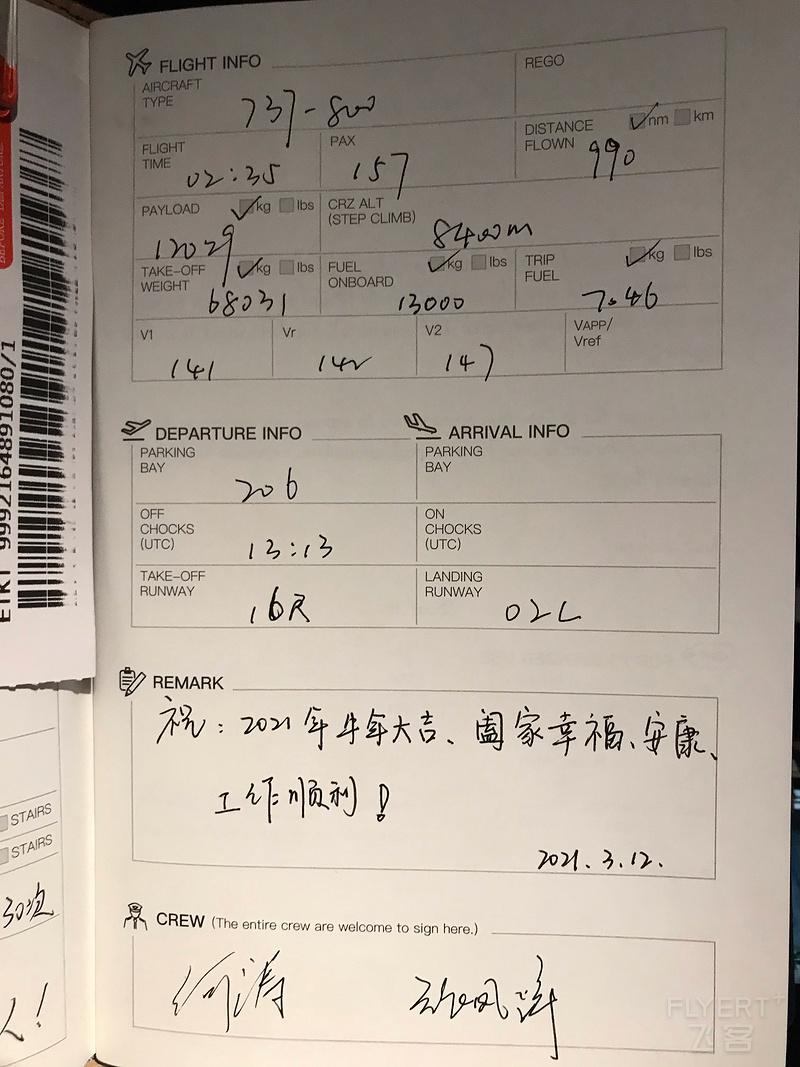 FLIGHT INFO
AIRCRAFT TYPE 737-800
REGO
FLIGHT TIME 02:35
PAX 157
DISTANCE FLOWN nm km 990
PAYLOAD kg lbs 12029
CRZ ALT (STEP CLIMB) 8400m
TAKE-OFF WEIGHT kg lbs 68031
FUEL ONBOARD kg lbs 13000
TRIP FUEL kg lbs 7046
V1 141
Vr 142
V2 147
VAPP/ Vref
DEPARTURE INFO
ARRIVAL INFO
PARKING BAY 206
PARKING BAY
OFF CHOCKS (UTC) 13:13
ON CHOCKS (UTC)
TAKE-OFF RUNWAY 16R
LANDING RUNWAY 02L
REMARK
祝：2021年牛年大吉、阖家幸福、安康、
工作顺利！
2021.3.12.
CREW (The entire crew are welcome to sign here.)
何涛
ETKT 9992164891080/1
STAIRS
STAIRS
30次
人！
FLYERT+
飞客